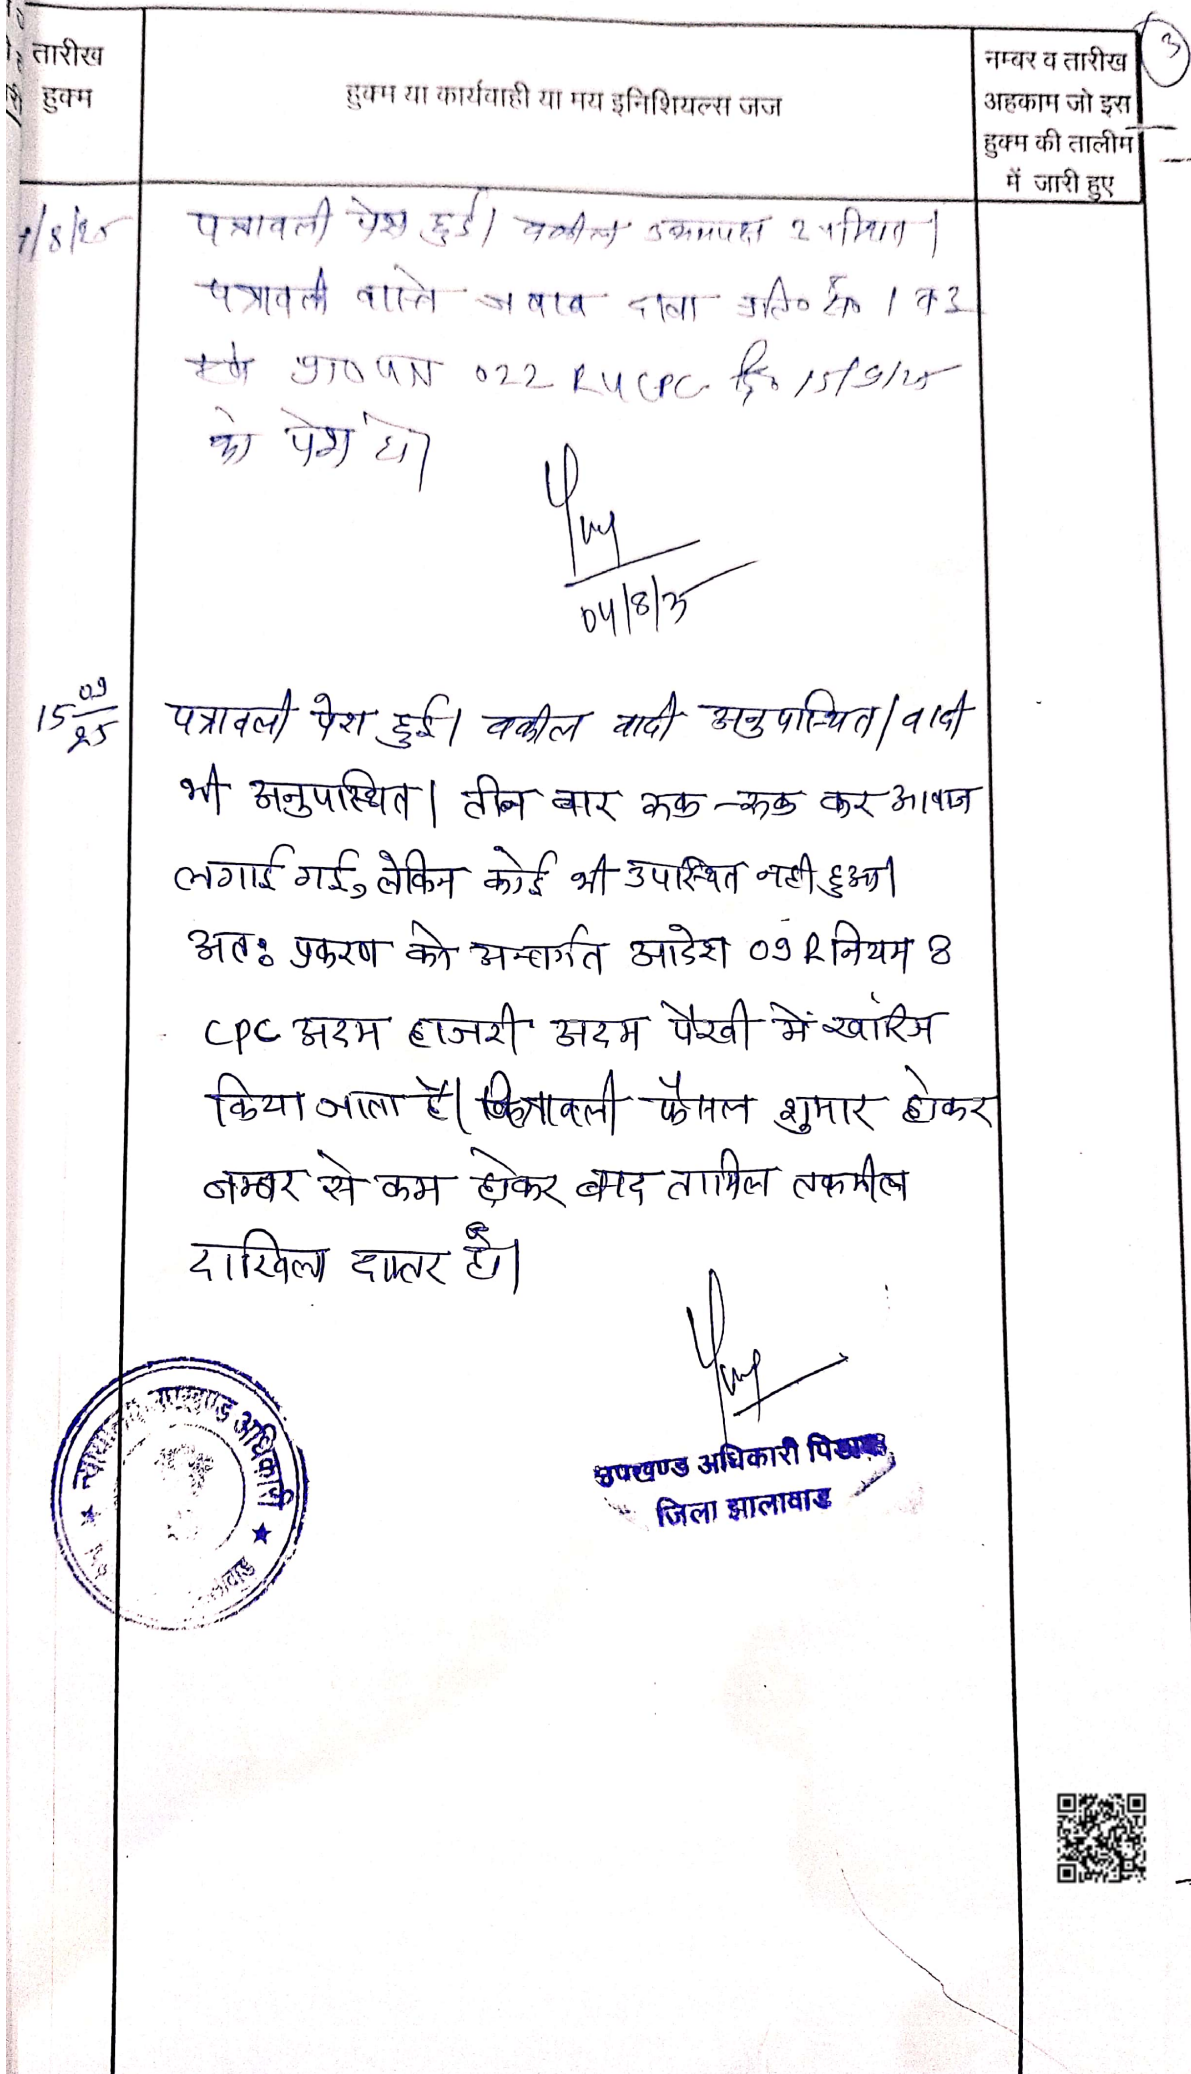 3
तारीख
हुक्म
हुक्म या कार्यवाही या मय इनिशियल्स जज
नम्बर व तारीख
अहकाम जो इस
हुक्म की तालीम
में जारी हुए
/8/25 पत्रावली पेश हुई। वकील उभयपक्ष उपस्थित।
पत्रावली वास्ते जवाब दावा प्रति० सं० 1 व 3
022 R4 CPC दि० 15/9/25
को पेश हो।
04/8/25
15/09/25 पत्रावली पेश हुई। वकील वादी अनुपास्थित। वादी
भी अनुपास्थित। तीन बार रूक-रूक कर आवाज
लगाई गई, लेकिन कोई भी उपास्थित नही हुआ।
अतः प्रकरण को अन्तर्गत आदेश 09 R नियम 8
CPC अदम हाजरी अदम पैरवी में खारिज
किया जाता है। पत्रावली फैसल शुमार होकर
नम्बर से कम होकर बाद तामिल तकमील
दाखिल दफ्तर हो।
उपखण्ड अधिकारी
जिला झालावाड
उपखण्ड अधिकारी